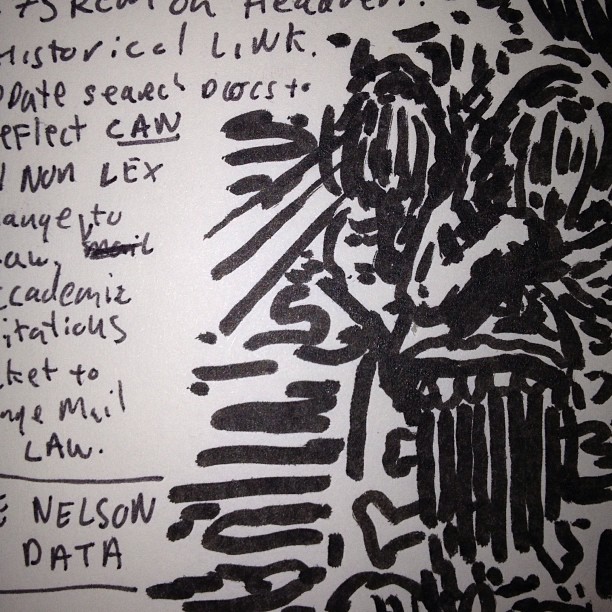 on Header.
Historical Link.
Date search docs to
reflect CAW
Non LEX
ange to
aw, mail
ccademic
itations
ket to
nge Mail
LAW.
E NELSON
DATA